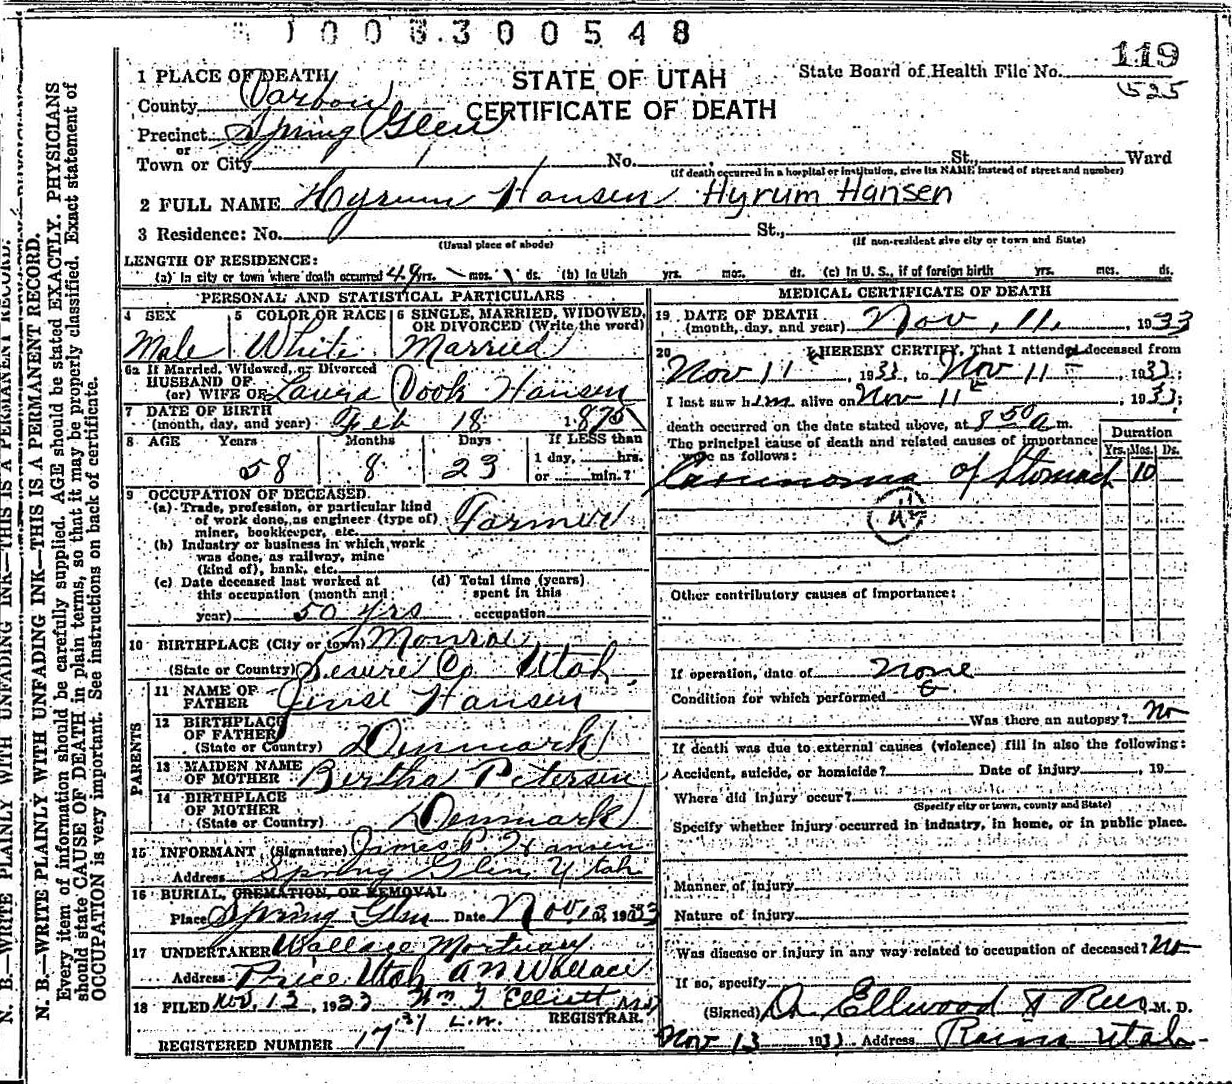 1003300548
119
525
STATE OF UTAH
CERTIFICATE OF DEATH
State Board of Health File No.
1 PLACE OF DEATH
County Carbon
Precinct Spring Glen
or
Town or City No. St., Ward
(If death occurred in a hospital or institution, give its NAME instead of street and number)
2 FULL NAME Hyrum Hansen Hyrum Hansen
3 Residence: No. St.,
(Usual place of abode) (If non-resident give city or town and State)
LENGTH OF RESIDENCE:
(a) In city or town where death occurred 48 yrs. mos. ds. (b) In Utah yrs. mos. ds. (c) In U. S., if of foreign birth yrs. mos. ds.
PERSONAL AND STATISTICAL PARTICULARS
4 SEX 5 COLOR OR RACE 6 SINGLE, MARRIED, WIDOWED,
OR DIVORCED (Write the word)
Male White Married
6a If Married, Widowed, or Divorced
HUSBAND OF
(or) WIFE OF Laura Cook Hansen
7 DATE OF BIRTH
(month, day, and year) Feb 18 1875
8 AGE Years Months Days If LESS than
1 day, hrs.
58 8 23 or min.?
9 OCCUPATION OF DECEASED
(a) Trade, profession, or particular kind
of work done, as engineer (type of)
miner, bookkeeper, etc. Farmer
(b) Industry or business in which work
was done, as railway, mine
(kind of), bank, etc.
(c) Date deceased last worked at
this occupation (month and
year) 50 yrs
(d) Total time (years)
spent in this
occupation
10 BIRTHPLACE (City or town) Monroe
(State or Country) Sevire Co Utah
PARENTS
11 NAME OF
FATHER Jense Hansen
12 BIRTHPLACE
OF FATHER
(State or Country) Denmark
13 MAIDEN NAME
OF MOTHER Bertha Petersen
14 BIRTHPLACE
OF MOTHER
(State or Country) Denmark
15 INFORMANT (Signature) James P. Hansen
Address Spring Glen, Utah
16 BURIAL, CREMATION, OR REMOVAL
Place Spring Glen Date Nov 13, 1933
17 UNDERTAKER Wallace Mortuary
Address Price Utah A N Wallace
18 FILED Nov. 13, 1933 Wm J Elliott
REGISTRAR.
REGISTERED NUMBER 17
MEDICAL CERTIFICATE OF DEATH
19 DATE OF DEATH
(month, day, and year) Nov, 11, 1933
20 I HEREBY CERTIFY, That I attended deceased from
Nov 11, 1933, to Nov 11, 1933;
I last saw him alive on Nov 11, 1933;
death occurred on the date stated above, at 8 50 a m.
The principal cause of death and related causes of importance
were as follows:
Duration
Yrs. Mos. Ds.
Carcinoma of Stomach 10
Other contributory causes of importance:
If operation, date of None
Condition for which performed
Was there an autopsy? No
If death was due to external causes (violence) fill in also the following:
Accident, suicide, or homicide? Date of injury , 19
Where did injury occur?
(Specify city or town, county and State)
Specify whether injury occurred in industry, in home, or in public place.
Manner of injury
Nature of injury
Was disease or injury in any way related to occupation of deceased? No
If so, specify
(Signed) Dr Ellwood Rees, M. D.
Nov 13 1933 Address Rains Utah
N. B.—WRITE PLAINLY WITH UNFADING INK—THIS IS A PERMANENT RECORD.
N. B.—WRITE PLAINLY WITH UNFADING INK—THIS IS A PERMANENT RECORD.
Every item of information should be carefully supplied. AGE should be stated EXACTLY. PHYSICIANS
should state CAUSE OF DEATH in plain terms, so that it may be properly classified. Exact statement of
OCCUPATION is very important. See instructions on back of certificate.